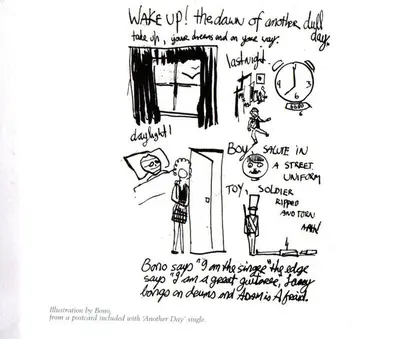 WAKE UP! the dawn of another dull day.
take up, your dreams and on your way.
last night
daylight!
BOY SALUTE IN
A STREET
UNIFORM
TOY, SOLDIER
RIPPED
AND TORN
Bono says "I am the singer" the edge
says "I am a great guitarist, Larry
bongs on drums and Adam is Afraid.
Illustration by Bono,
from a postcard included with 'Another Day' single.